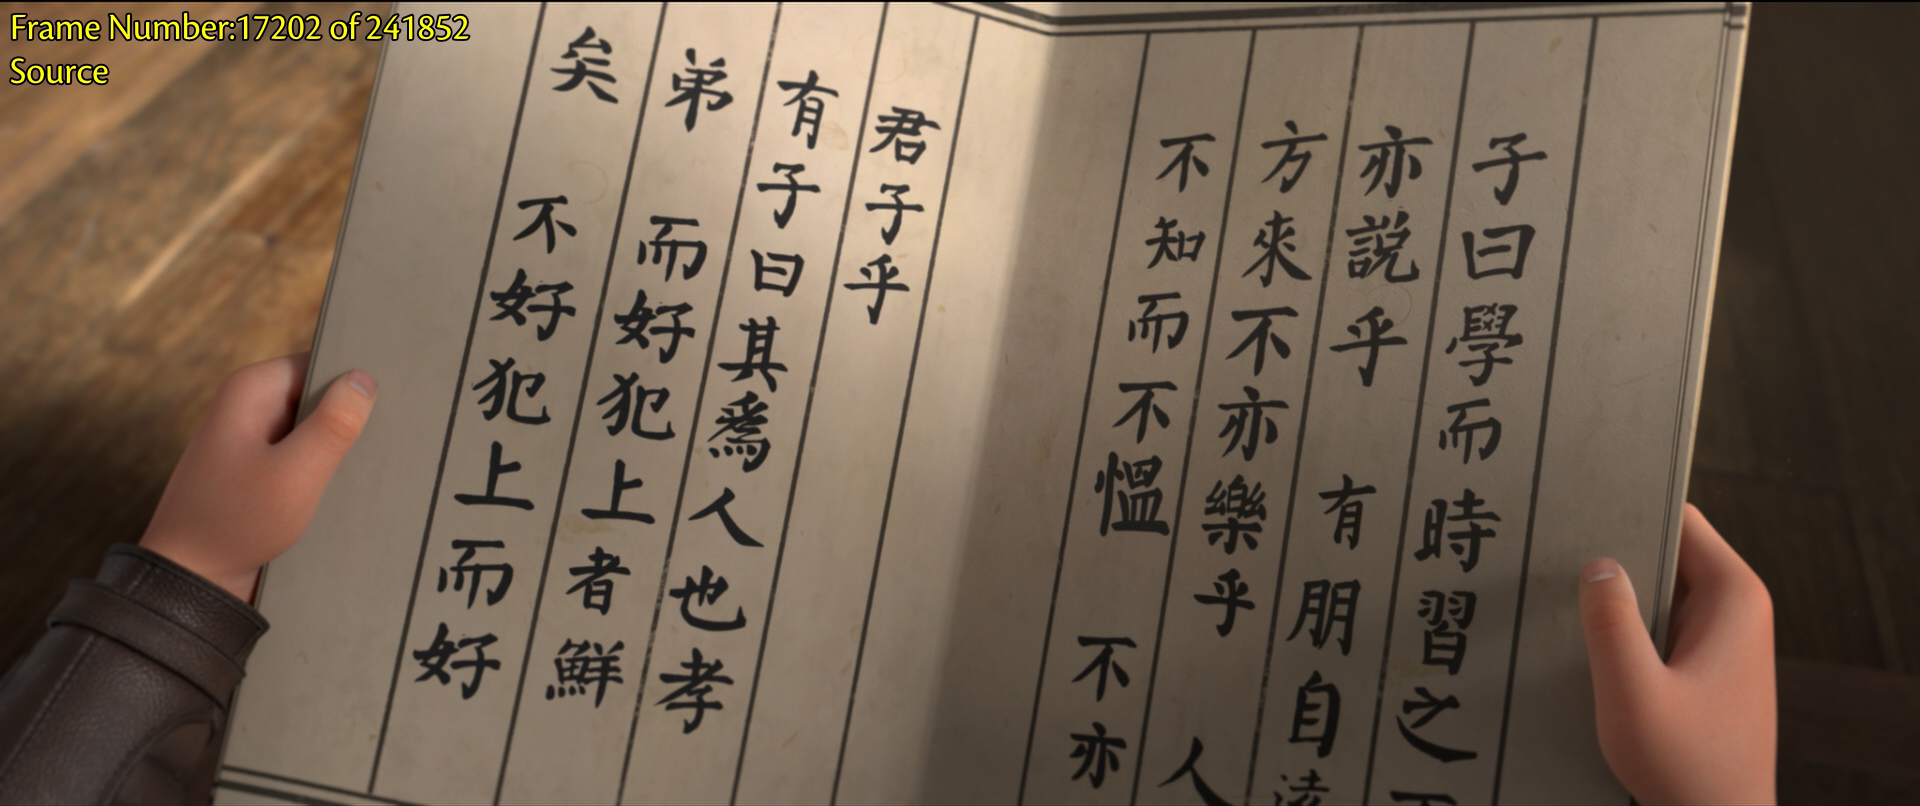 Frame Number:17202 of 241852
Source
子曰學而時習之不
亦説乎 有朋自遠
方來不亦樂乎 人
不知而不慍 不亦
君子乎
有子曰其爲人也孝
弟 而好犯上者鮮
矣 不好犯上而好